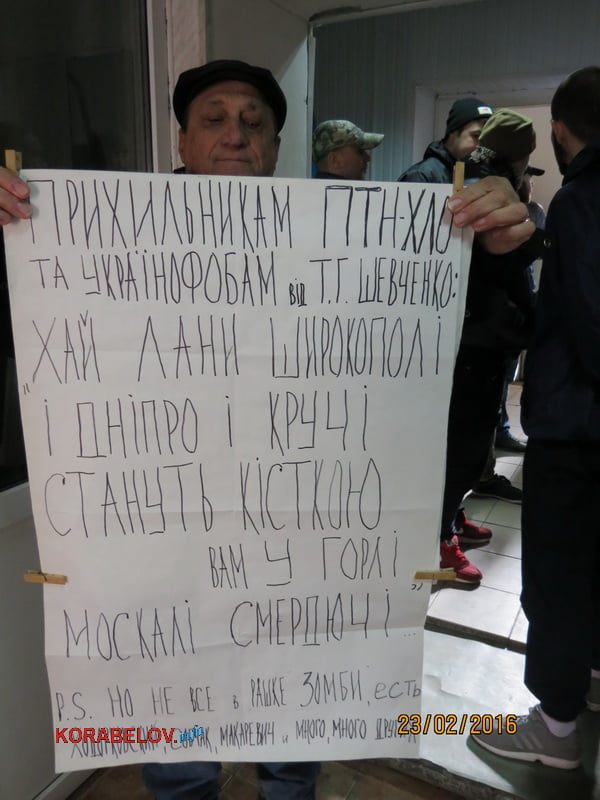 ПРИХИЛЬНИКАМ ПТН-ХЛО
ТА УКРАЇНОФОБАМ від Т.Г. ШЕВЧЕНКО:
„ХАЙ ЛАНИ ШИРОКОПОЛІ
І ДНІПРО І КРУЧІ
СТАНУТЬ КІСТКОЮ
ВАМ У ГОРЛІ
МОСКАЛІ СМЕРДЮЧІ...”
P.S. НО НЕ ВСЕ в РАШКЕ ЗОМБИ, есть
ХОДОРКОВСКИЙ, СОБЧАК, МАКАРЕВИЧ и МНОГО, МНОГО
KORABELOV.
23/02/2016